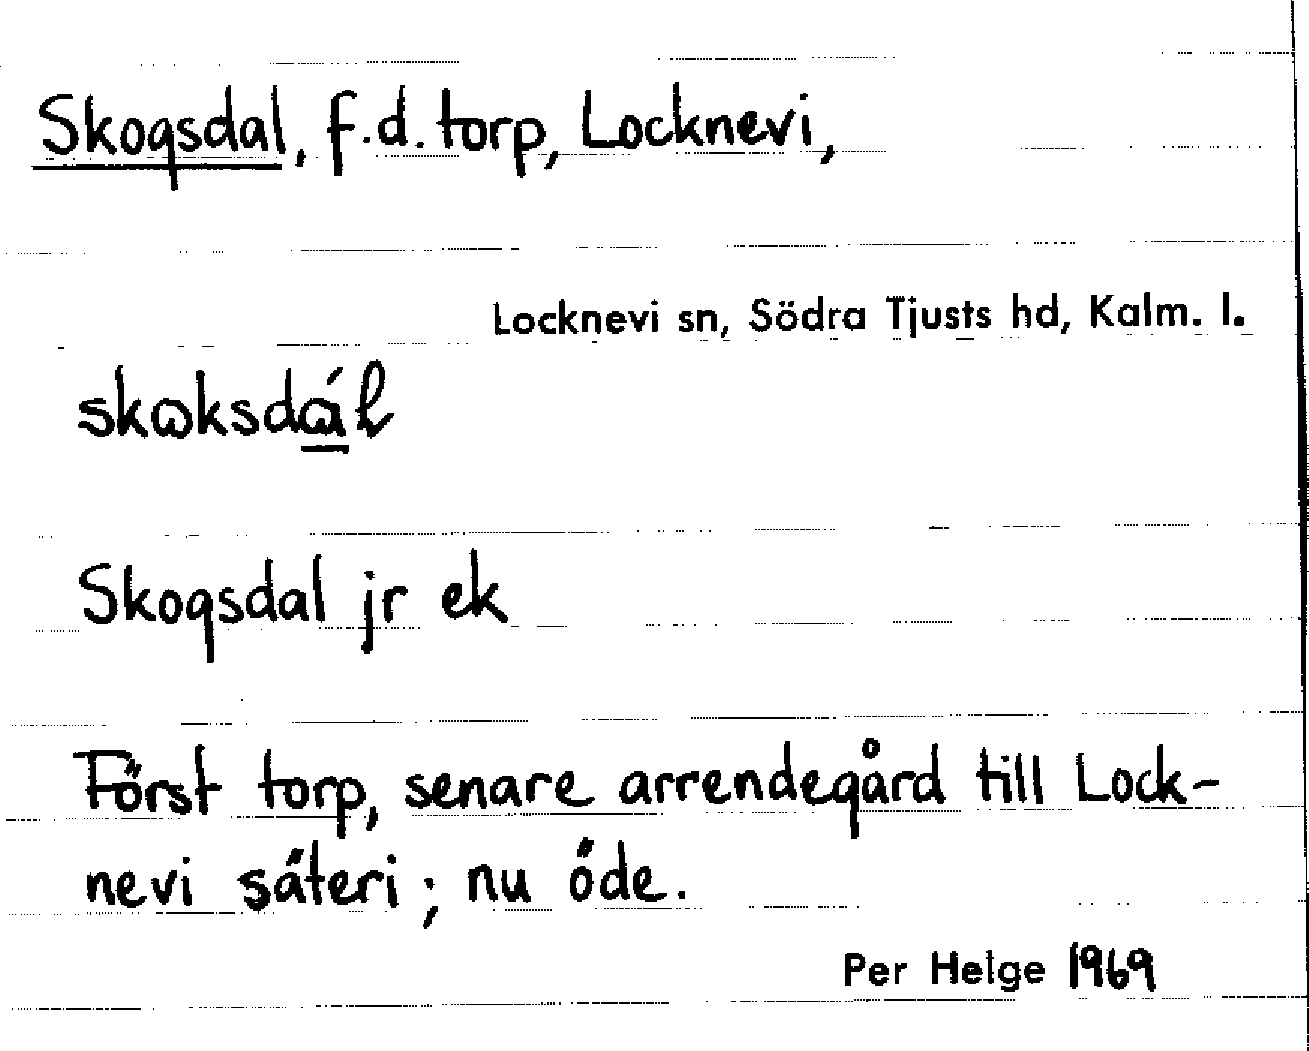 Skogsdal, f.d. torp, Locknevi,
Locknevi sn, Södra Tjusts hd, Kalm. l.
Skogsdal jr ek
Först torp, senare arrendegård till Lock-
nevi säteri; nu öde.
Per Helge 1969